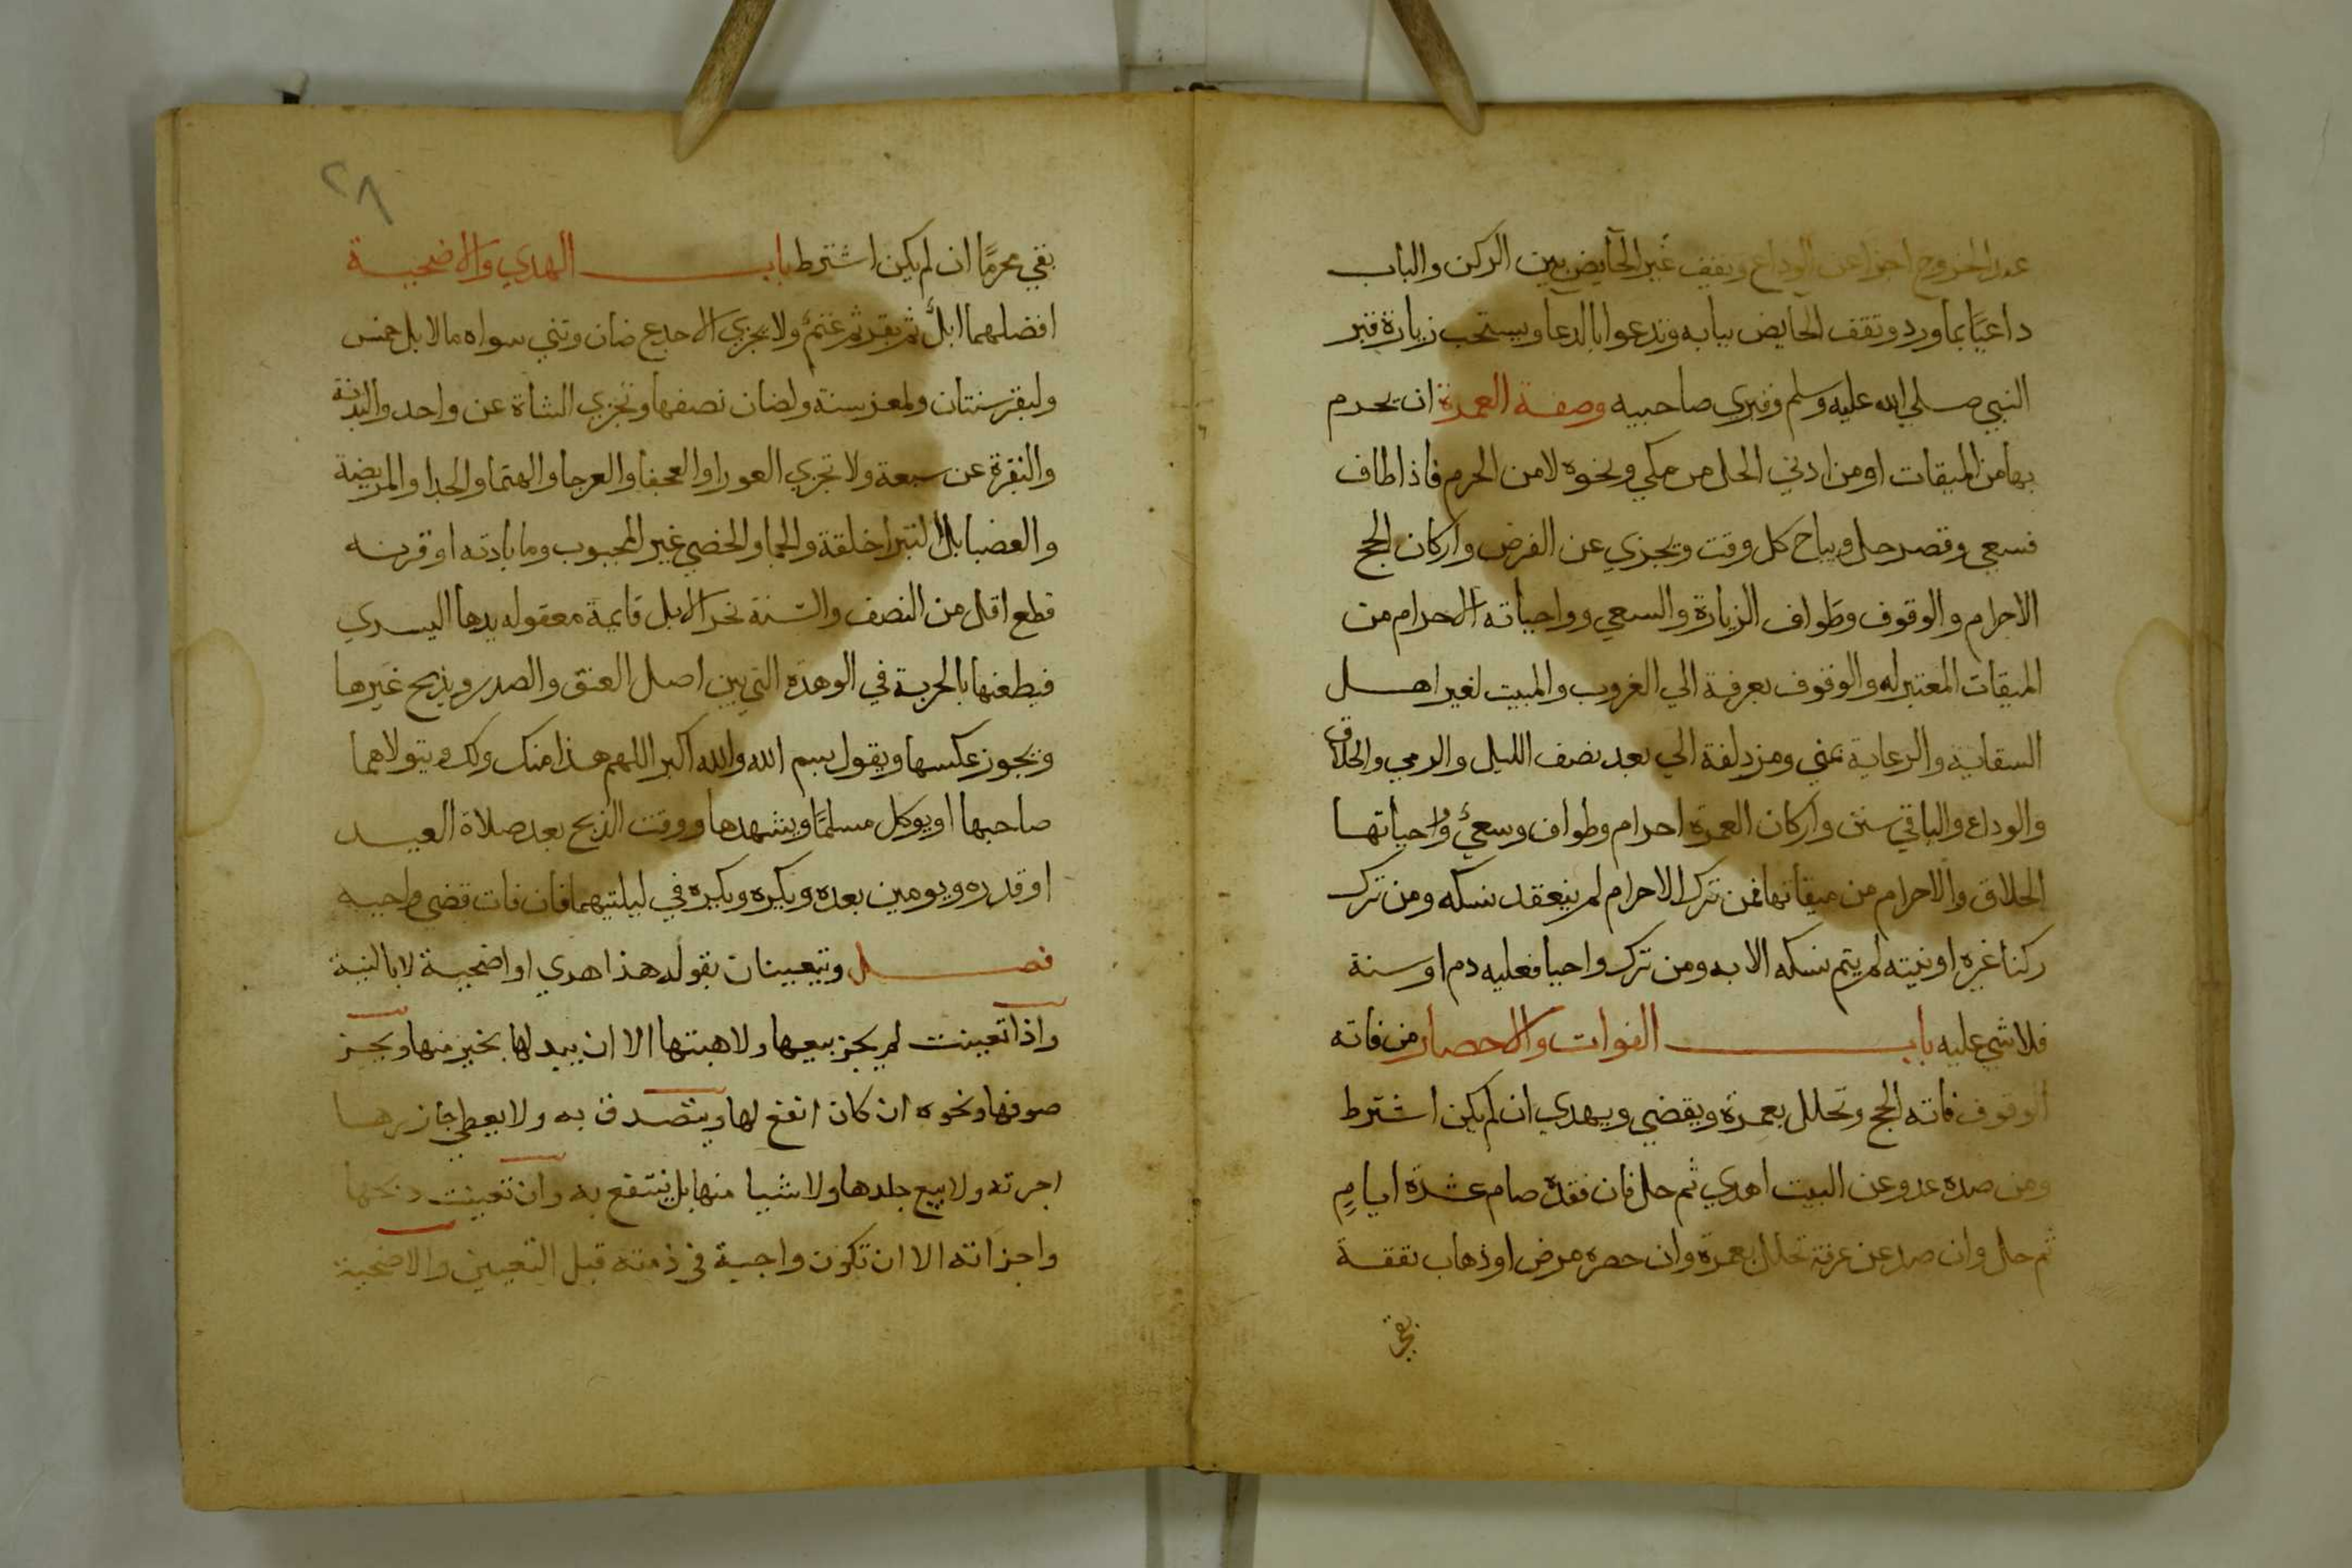 عند الخروج اجزا عن الوداع ويقف غير الحايض بين الركن والباب
داعيًا بما ورد وتقف الحايض ببابه وتدعوا بالدعا ويستحب زيارة قبر
النبي صلي الله عليه وسلم وقبري صاحبيه وصفة العمرة ان يحرم
بها من الميقات او من ادني الحل من مكي ونحوه لا من الحرم فاذا طاف
وسعي وقصر حل ويباح كل وقت ويجزي عن الفرض واركان الحج
الاحرام والوقوف وطواف الزيارة والسعي وواجباته الاحرام من
الميقات المعتبر له والوقوف بعرفة الي الغروب والمبيت لغير اهل
السقاية والرعاية بمني ومزدلفة الي بعد نصف الليل والرمي والحلاق
والوداع والباقي سنن واركان العمرة احرام وطواف وسعي وواجباتها
الحلاق والاحرام من ميقاتها فمن ترك الاحرام لم ينعقد نسكه ومن ترك
ركنا غيره او نيته لم يتم نسكه الا به ومن ترك واجبا فعليه دم او سنة
فلا شي عليه باب الفوات والاحصار من فاته
الوقوف فاته الحج وتحلل بعمرة ويقضي ويهدي ان لم يكن اشترط
ومن صده عدو عن البيت اهدي ثم حل فان فقده صام عشرة ايامٍ
ثم حل وان صد عن عرفة تحلل بعمرة وان حصره مرض او ذهاب نفقة
بقي
٢٨
بقي محرمًا ان لم يكن اشترط باب الهدي والاضحية
افضلهما ابلٌ ثم بقر ثم غنمٌ ولا يجزي الا جدع ضان وثني سواه مالابل خمس
ولبقر سنتان ولمعز سنة ولضان نصفها وتجزي الشاة عن واحد والبدنة
والبقرة عن سبعة ولا تجزي العورا والعجفا والعرجا والهتما والجدا والمريضة
والعضبا بل البترا خلقة والجما والخصي غير المجبوب وما باذنه او قرنه
قطع اقل من النصف والسنة نحر الابل قايمة معقوله يدها اليسري
فيطعنها بالحربة في الوهدة التي بين اصل العنق والصدر ويذبح غيرها
ويجوز عكسها ويقول بسم الله والله اكبر اللهم هذا منك ولك ويتولاهما
صاحبها او يوكل مسلمًا ويشهدها ووقت الذبح بعد صلاة العيد
او قدره ويومين بعده ويكره ويكره في ليلتيهما فان فات قضي واجبه
فصل ويتعينان بقوله هذا هدي او اضحية لا بالنية
واذا تعينت لم يجز بيعها ولا هبتها الا ان يبدلها بخير منها ويجز
صوفها ونحوه ان كان انفع لها ويتصدق به ولا يعطي جازرها
اجرته ولا يبيع جلدها ولا شيا منها بل ينتفع به وان تعينت ذبحها
واجزاته الا ان تكون واجبة في ذمته قبل التعيين والاضحية